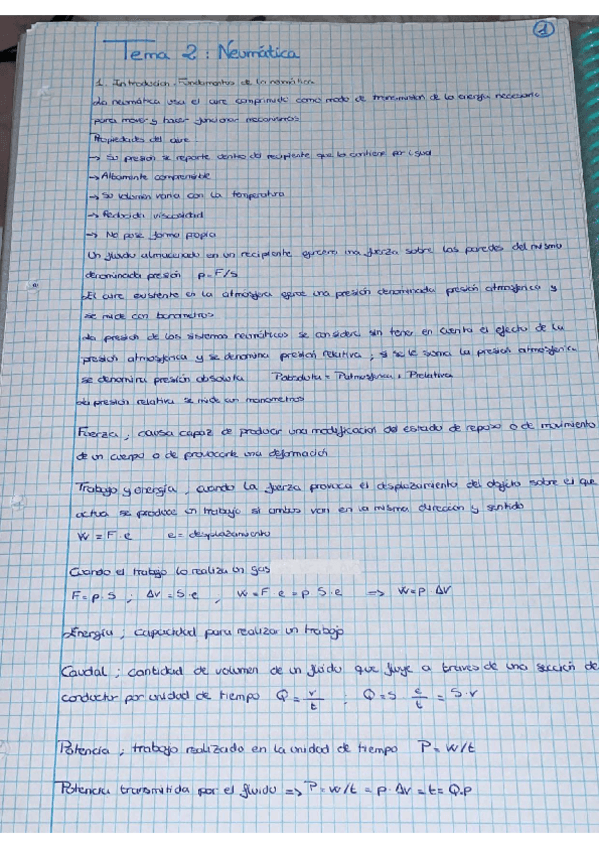 1
Tema 2: Neumática
1. Introducion. Fundamentos de la neumática
La neumática usa el aire comprimido como modo de transmision de la energía necesaria
para mover y hacer funcionar mecanismos
Propiedades del aire
→ Su presión se reparte dentro del recipiente que la contiene por igual
→ Altamente compresible
→ Su volumen varia con la temperatura
→ Reducida viscosidad
→ No pose forma propia
Un fluido almacenado en un recipiente ejercera una fuerza sobre las paredes del mismo
denominada presión p=F/s
El aire existente en la atmosfera ejerce una presión denominada presión atmosferica y
se mide con barometros
La presion de los sistemas neumáticos se considera sin tener en cuenta el efecto de la
presion atmosferica y se denomina presion relativa, si se le suma la presion atmosferica
se denomina presion absoluta Pabsoluta = Patmosferica + Prelativa
La presion relativa se mide con manometros
Fuerza, causa capaz de producir una modificacion del estado de reposo o de movimiento
de un cuerpo o de provocarle una deformación
Trabajo y energía, cuando la fuerza provoca el desplazamiento del objeto sobre el que
actua se produce un trabajo si ambos van en la misma direccion y sentido
W = F·e e = desplazamiento
Cuando el trabajo lo realiza un gas
F=p·S ; Δv=S·e , W=F·e=p·S·e => W=p·Δv
Energía, capacidad para realizar un trabajo
Caudal; cantidad de volumen de un fluido que fluye a traves de una sección de
conductor por unidad de tiempo Q = v/t ; Q=S·e/t = S·v
Potencia, trabajo realizado en la unidad de tiempo P=W/t
Potencia transmitida por el fluido => P=w/t = p·Δv=t= Q.p